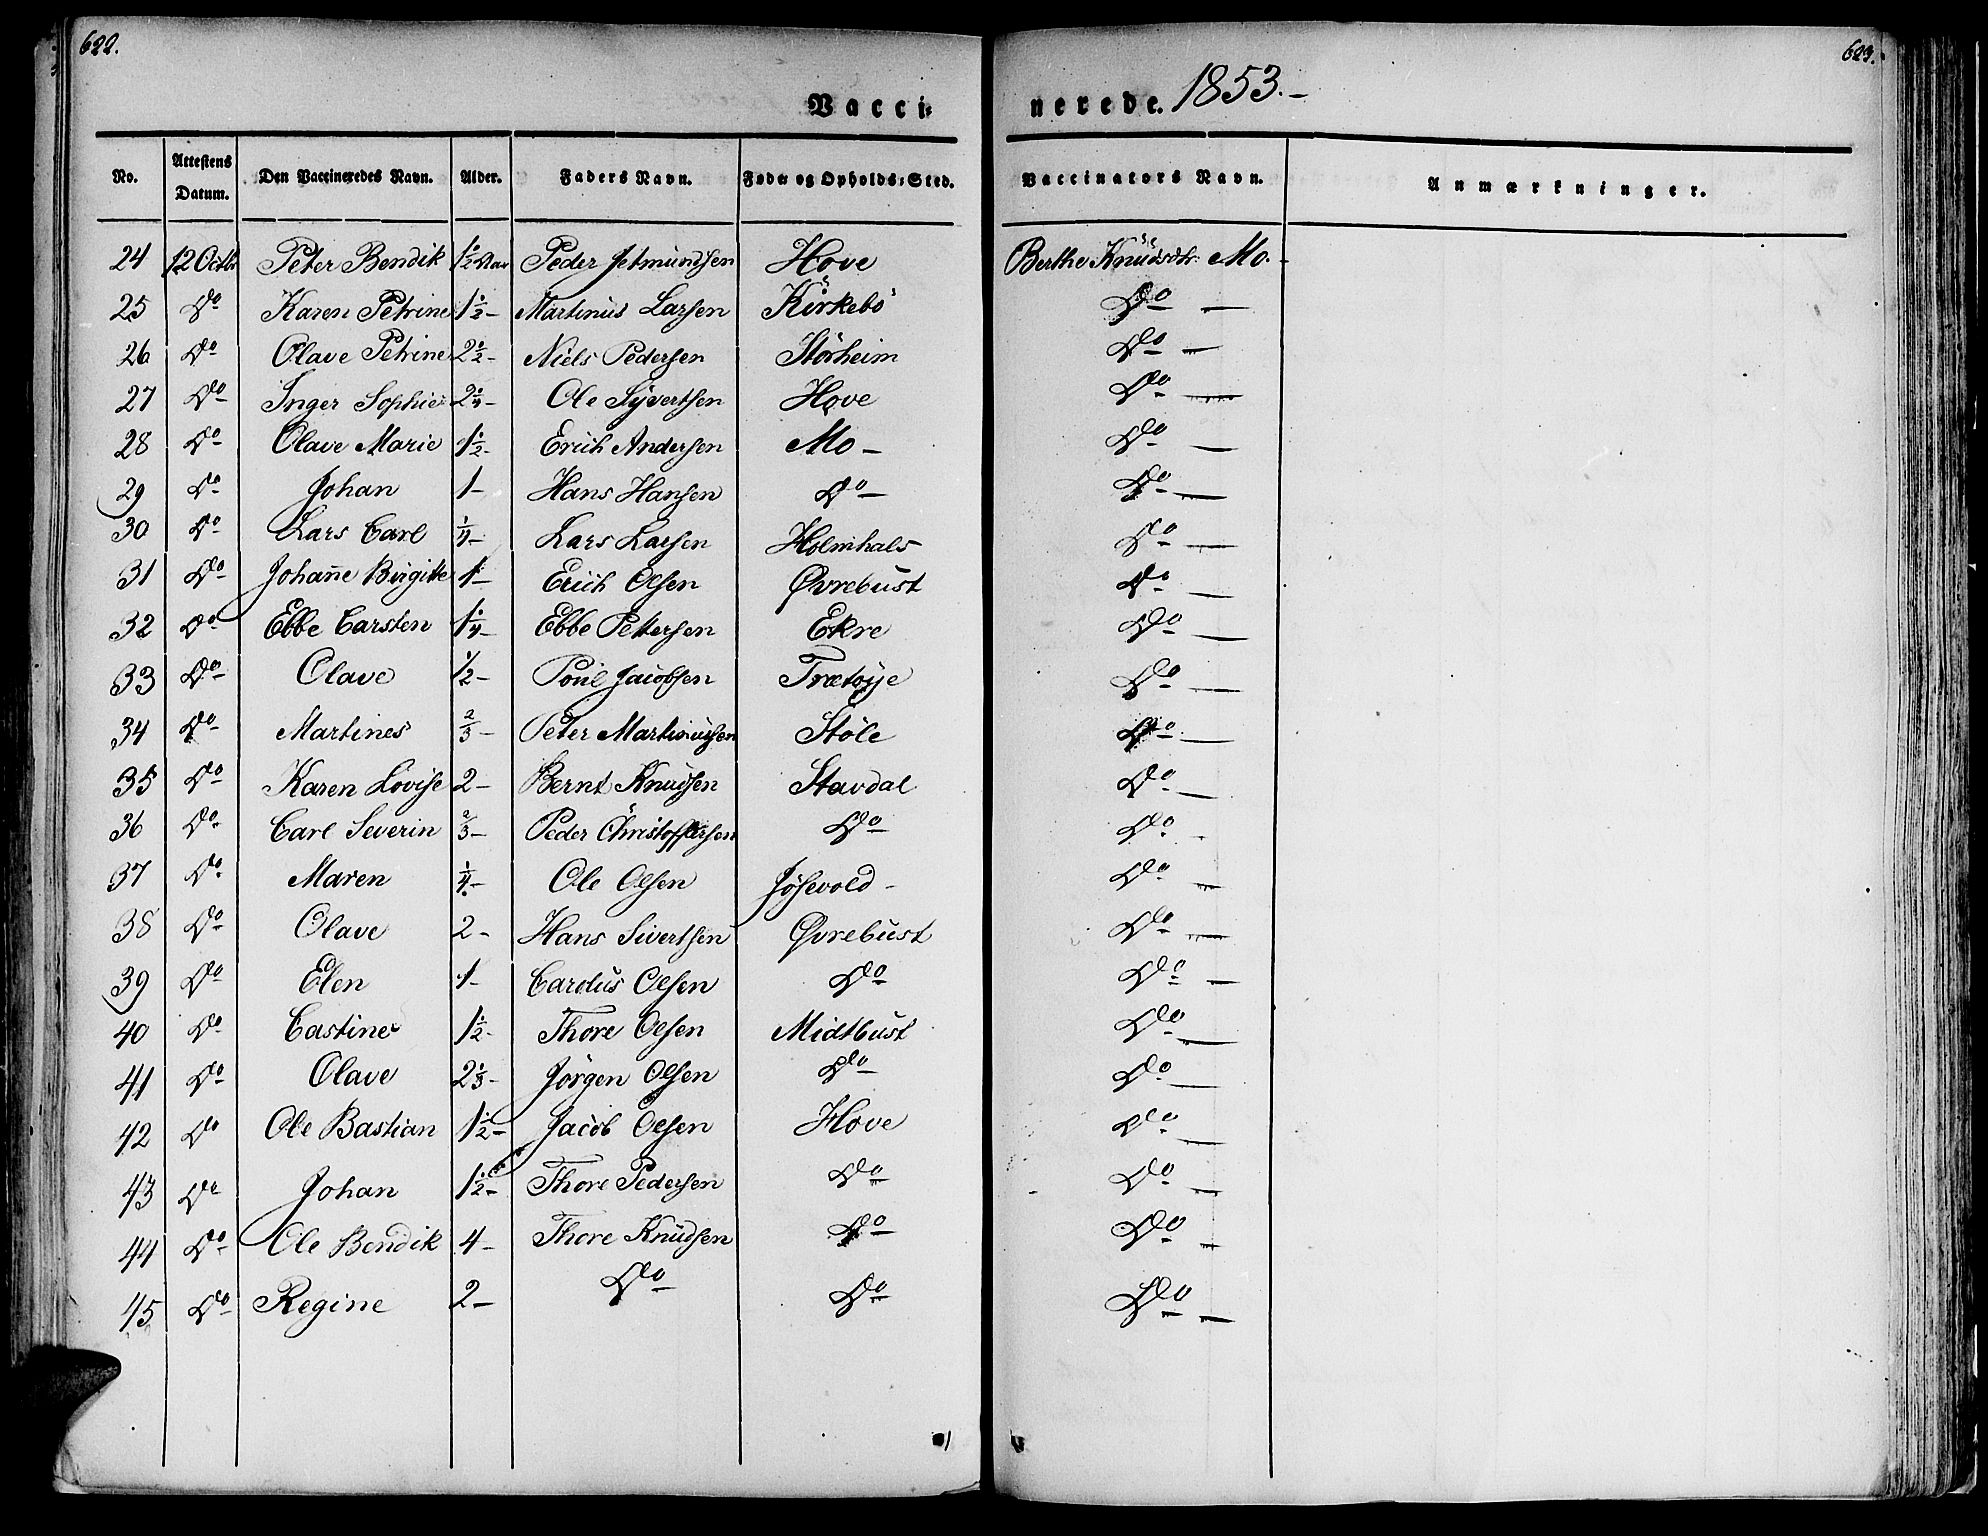 622.
623.
Vacci=
nerede. 1853.-
No. Attestens Datum. Den Vaccineredes Navn. Alder. Faders Navn. Føde= og Opholds=Sted. Vaccinators Navn. Anmærkninger.
24 12 Octbr Peter Bendik 1½ Peder Jetmundsen Hove Berthe Knüdsdtr. Mo.-
25 Do Karen Petrine 1½- Martinus Larsen Kirkebö Do —
26 Do Olave Petrine 2½- Niels Pedersen Störheim Do —
27 Do Inger Sophie 2¼- Ole Syvertsen Hove Do —
28 Do Olave Marie 1½- Erich Andersen Mo - Do —
29 Do Johan 1- Hans Hansen Do - Do —
30 Do Lars Carl ¼- Lars Larsen Holmhals Do —
31 Do Johan̄e Birgitte 1- Erich Olsen Øvrebust Do —
32 Do Ebbe Carsten 1¼- Ebbe Pettersen Ekre Do —
33 Do Olave ½- Poül Jacobsen Trætøye Do —
34 Do Martines ⅔- Peter Martinussen Støle Do —
35 Do Karen Lovise 2- Bernt Knudsen Stavdal Do —
36 Do Carl Severin ⅔- Peder Christoffersen Do Do -
37 Do Maren ¼- Ole Olsen Jøsevold - Do —
38 Do Olave 2- Hans Sivertsen Øvrebüst Do —
39 Do Elen 1- Carolüs Olsen Do Do —
40 Do Castine 1½- Thore Olsen Midtbüst Do —
41 Do Olave 2⅓- Jörgen Olsen Do Do —
42 Do Ole Bastian 1½- Jacob Olsen Hove Do —
43 Do Johan 1½- Thore Pedersen Do Do —
44 Do Ole Bendik 4- Thore Knüdsen Do Do —
45 Do Regine 2- Do Do Do —